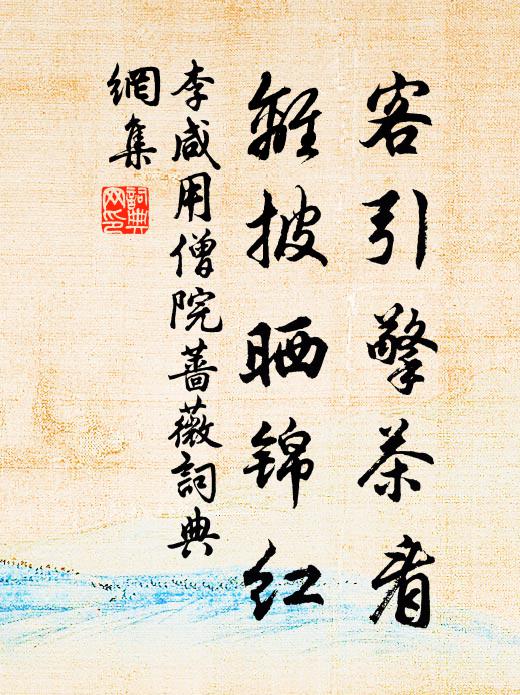 客引擎茶看
離披晒锦红
李咸用僧院薔薇詞典
網集
詞典
网印